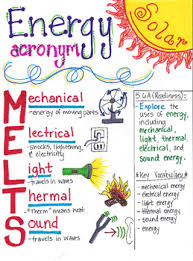 Energy
acronym
Solar
Mechanical
-energy of moving parts
Electrical
-shocks, lightening,
& electricity
Light
-travels in waves
Thermal
-"therm" means heat
Sound
-travels in waves
5.6A (Readiness):
-Explore the
uses of energy,
including
mechanical,
light, thermal,
electrical, and
sound energy.
*Key Vocabulary*
-mechanical energy
-electrical energy
-light energy
-thermal energy
-sound energy